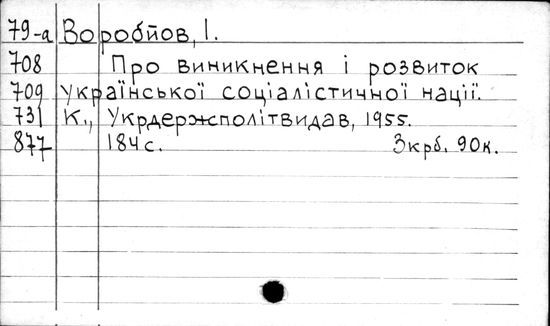 79-а Воробйов, І.
708 Про виникнення і розвиток
709 української соціалістичної нації.
731 К., Укрдержсполітвидав, 1955.
877 184 с. 3 крб. 90 к.